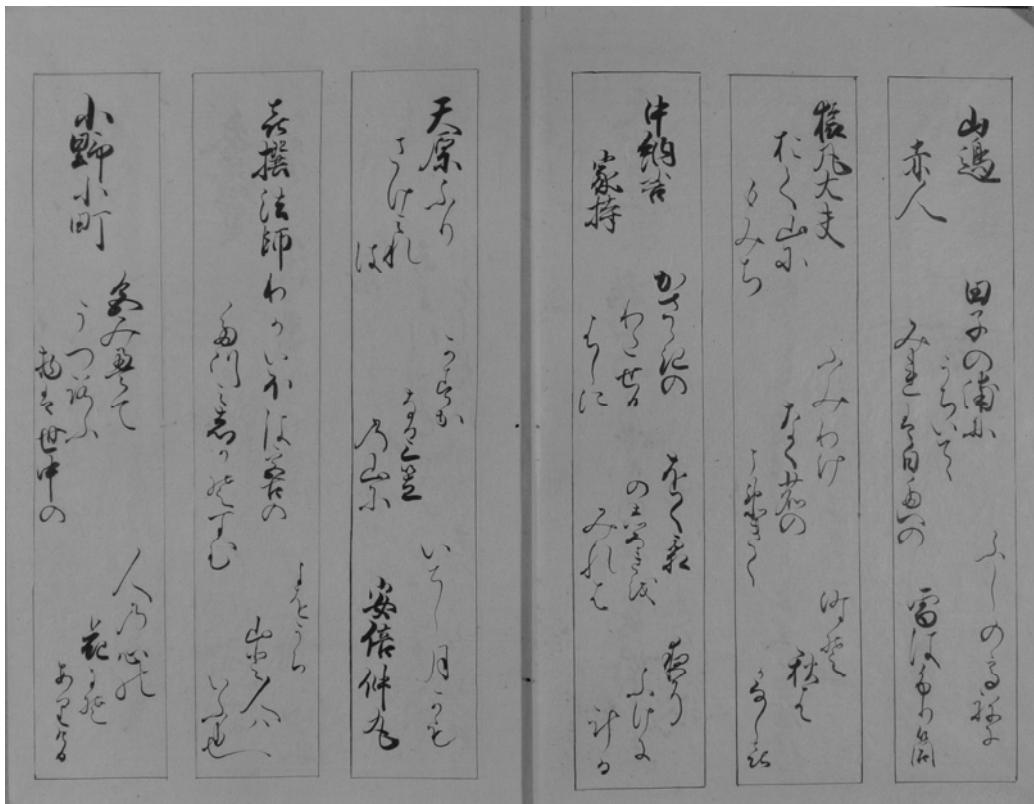 山邊
赤人
田子の浦に
うちいてゝ
みれは白妙の
ふしの高ねに
雪はふりつゝ
猿丸大夫
おく山に
もみち
ふみわけ
なく鹿の
こゑきく
時そ
秋は
かなしき
中納言
家持
かさゝきの
わたせる
はしに
をく霜
のしろきを
みれは
夜そ
ふけに
ける
天原ふり
さけみれ
は
かすか
なる三笠
の山に
いてし月かも
安倍仲丸
喜撰法師
わかいほは
みやこの
たつみしかそすむ
よをうち
山と人は
いふ也
小野小町
色みえて
うつろふ
物は世中の
人の心の
花にそ
ありける